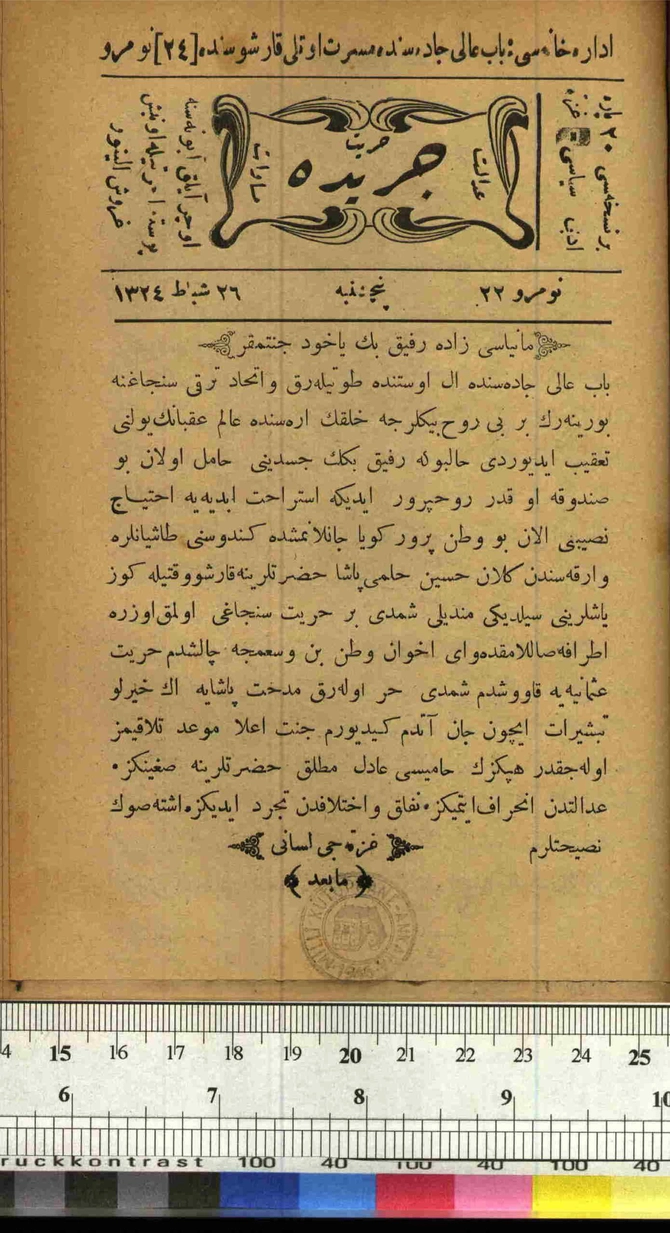 اداره خانه‌سی: باب عالی جاده‌سنده مسرت اوتلی قارشوسنده [٢٤] نومرو
بر نسخه‌سی ٢٠ پاره
ادبی سیاسی غزته
عدالت
حریت
جریده
مساوات
اوچر آیلق آبونه‌سنه
پوسته اجرتیله اونبش
غروش آلینور
نومرو ٢٢
پنجشنبه
٢٦ شباط ١٣٢٤
مانیاسی زاده رفیق بك یاخود جنتمقر
باب عالی جاده‌سنده ال اوستنده طوتیله‌رق و اتحاد ترقی سنجاغنه
بورینه‌رك بر بی روح بیكلرجه خلقك اره‌سنده عالم عقبانك یولنی
تعقیب ایدیوردی حالبوكه رفیق بكك جسدینی حامل اولان بو
صندوقه او قدر روحپرور ایدیكه استراحت ابدیه‌یه احتیاج
نصیبنی الان بو وطن پرور كویا جانلانمشده كندوسنی طاشیانلره
و ارقه‌سندن كلان حسین حلمی پاشا حضرتلرینه قارشو وقتیله كوز
یاشلرینی سیلدیكی مندیلی شمدی بر حریت سنجاغی اولمق اوزره
اطرافه صاللامقده و ای اخوان وطن بن وسعمجه چالشدم حریت
عثمانیه‌یه قاووشدم شمدی حر اوله‌رق مدحت پاشایه اك خیرلو
تبشیرات ایچون جان آتدم كیدیورم جنت اعلا موعد تلاقیمز
اوله‌جقدر هپكزك حامیسی عادل مطلق حضرتلرینه صغینكز.
عدالتدن انحراف ایتمیكز. نفاق و اختلافدن تجرد ایدیكز. اشته صوك
نصیحتلرم
غزته‌جی لسانی
﴿ مابعد ﴾
MİLLİ KÜTÜPHANE-ANKARA
14 15 16 17 18 19 20 21 22 23 24 25
6 7 8 9 10
ruckkontrast 100 40 100 40 100 40